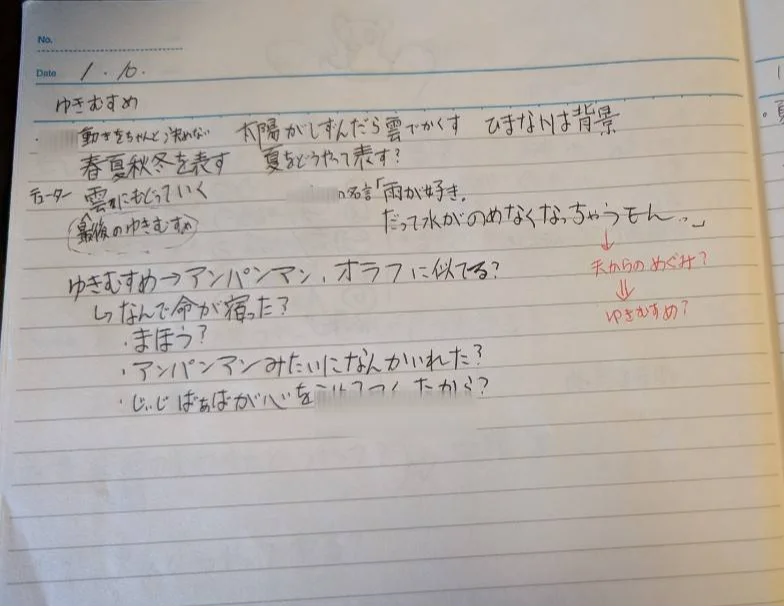 No.
Date 1.10.
ゆきむすめ
・ 動きをちゃんと決めない 太陽がしずんだら雲でかくす ひまなNは背景
春夏秋冬を表す 夏をどうやって表す?
チューター 雲にもどっていく の名言「雨が好き。
最後のゆきむすめ だって水がのめなくなっちゃうモン..」
↓
天からのめぐみ?
⇓
ゆきむすめ?
ゆきむすめ→アンパンマン、オラフに似てる?
↳なんで命が宿った?
・まほう?
・アンパンマンみたいになんかいれた?
・じぃじばぁばが心を たから?